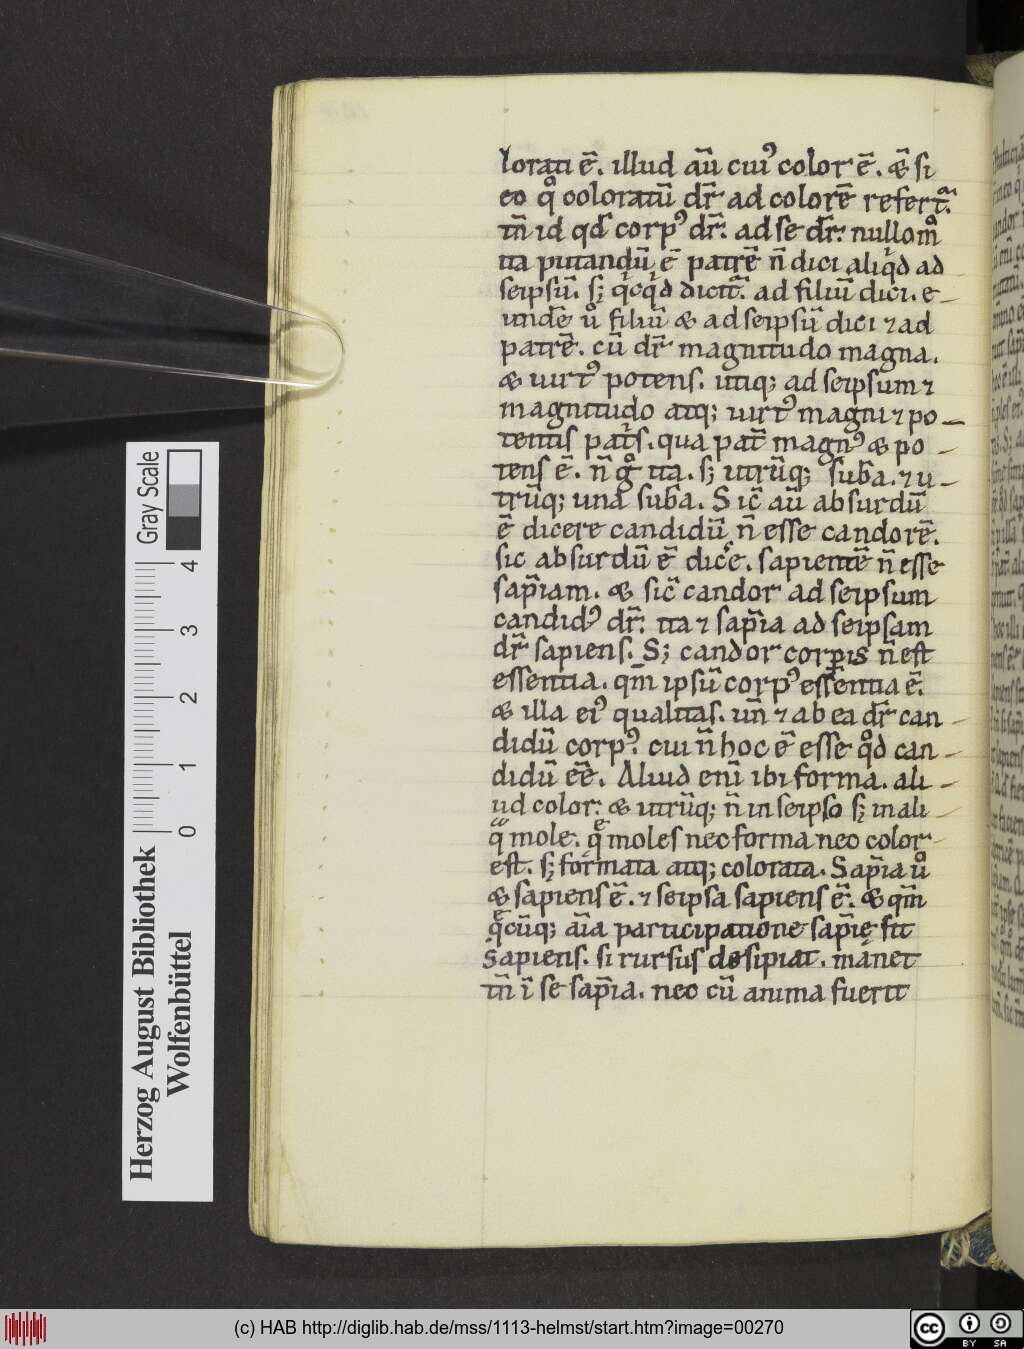 lorati ē. illud aū cui⁹ color ē. & si
eo qͦ coloratū dr̄ ad colorē refert᷑.
tn̄ id qđ corp⁹ dr̄. ad se dr̄. nullomͦ
ita putandū ē patrē n̄ dici aliqͥd ad
seipsū. sꝫ qͥcqͥd dicit᷑. ad filiū dici. e-
undē ůo filiū & ad seipsū dici ⁊ ad
patrē. cū dr̄ magnitudo magna.
& uirt⁹ potens. utiqꝫ ad seipsum ⁊
magnitudo atqꝫ uirt⁹ magni ⁊ po-
tentis patͥs. qua pat̄ magn⁹ & po-
tens ē. n̄ gͦ ita. sꝫ utrūqꝫ suba. ⁊ u-
trūqꝫ una suba. Sic̄ aū absurdū
ē dicere candidū n̄ esse candorē.
sic absurdū ē dice. sapientē n̄ esse
sap̄iam. & sic̄ candor ad seipsum
candid⁹ dr̄. ita ⁊ sap̄ia ad seipsam
dr̄ sapiens. Sꝫ candor corꝑis n̄ est
essentia. qm̄ ipsū corp⁹ essentia ē.
& illa ei⁹ qualitas. un̄ ⁊ ab ea dr̄ can-
didū corp⁹. cui n̄ hoc ē esse qͦd can-
didū ēē. Aliud enī ibi forma. ali-
ud color. & utrūqꝫ n̄ in seipso sꝫ in ali-
qͣ mole. qͤ moles nec forma nec color
est. sꝫ formata atqꝫ colorata. Sap̄ia ůo
& sapiens ē. ⁊ seipsa sapiens ē. & qm̄
qͤcūqꝫ aīa participatione sap̄ię fit
sapiens. si rursus desipiat. manet
tn̄ ī se sap̄ia. nec cū anima fuerit
Gray Scale
4
3
2
1
0
Herzog August Bibliothek
Wolfenbüttel
(c) HAB http://diglib.hab.de/mss/1113-helmst/start.htm?image=00270
cc BY SA